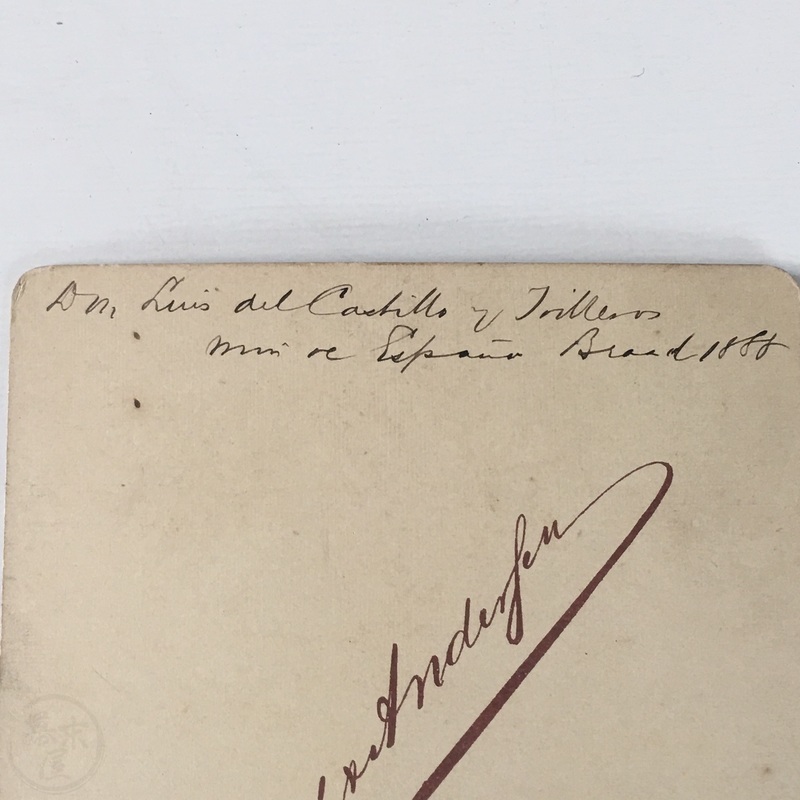 Don Luis del Castillo y Trilleros
Min de España Braad 1888
Andersen